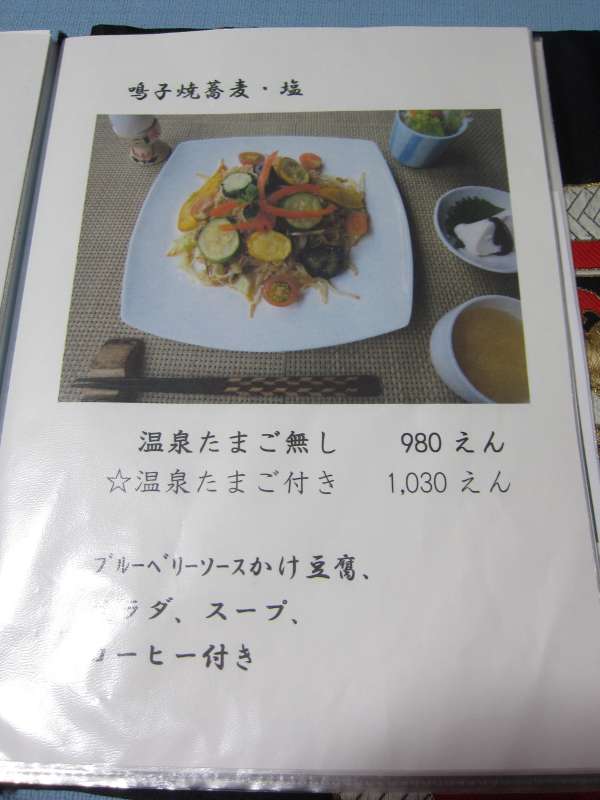 鳴子焼蕎麦・塩
温泉たまご無し 980えん
☆温泉たまご付き 1,030えん
ブルーベリーソースかけ豆腐、
サラダ、スープ、
コーヒー付き